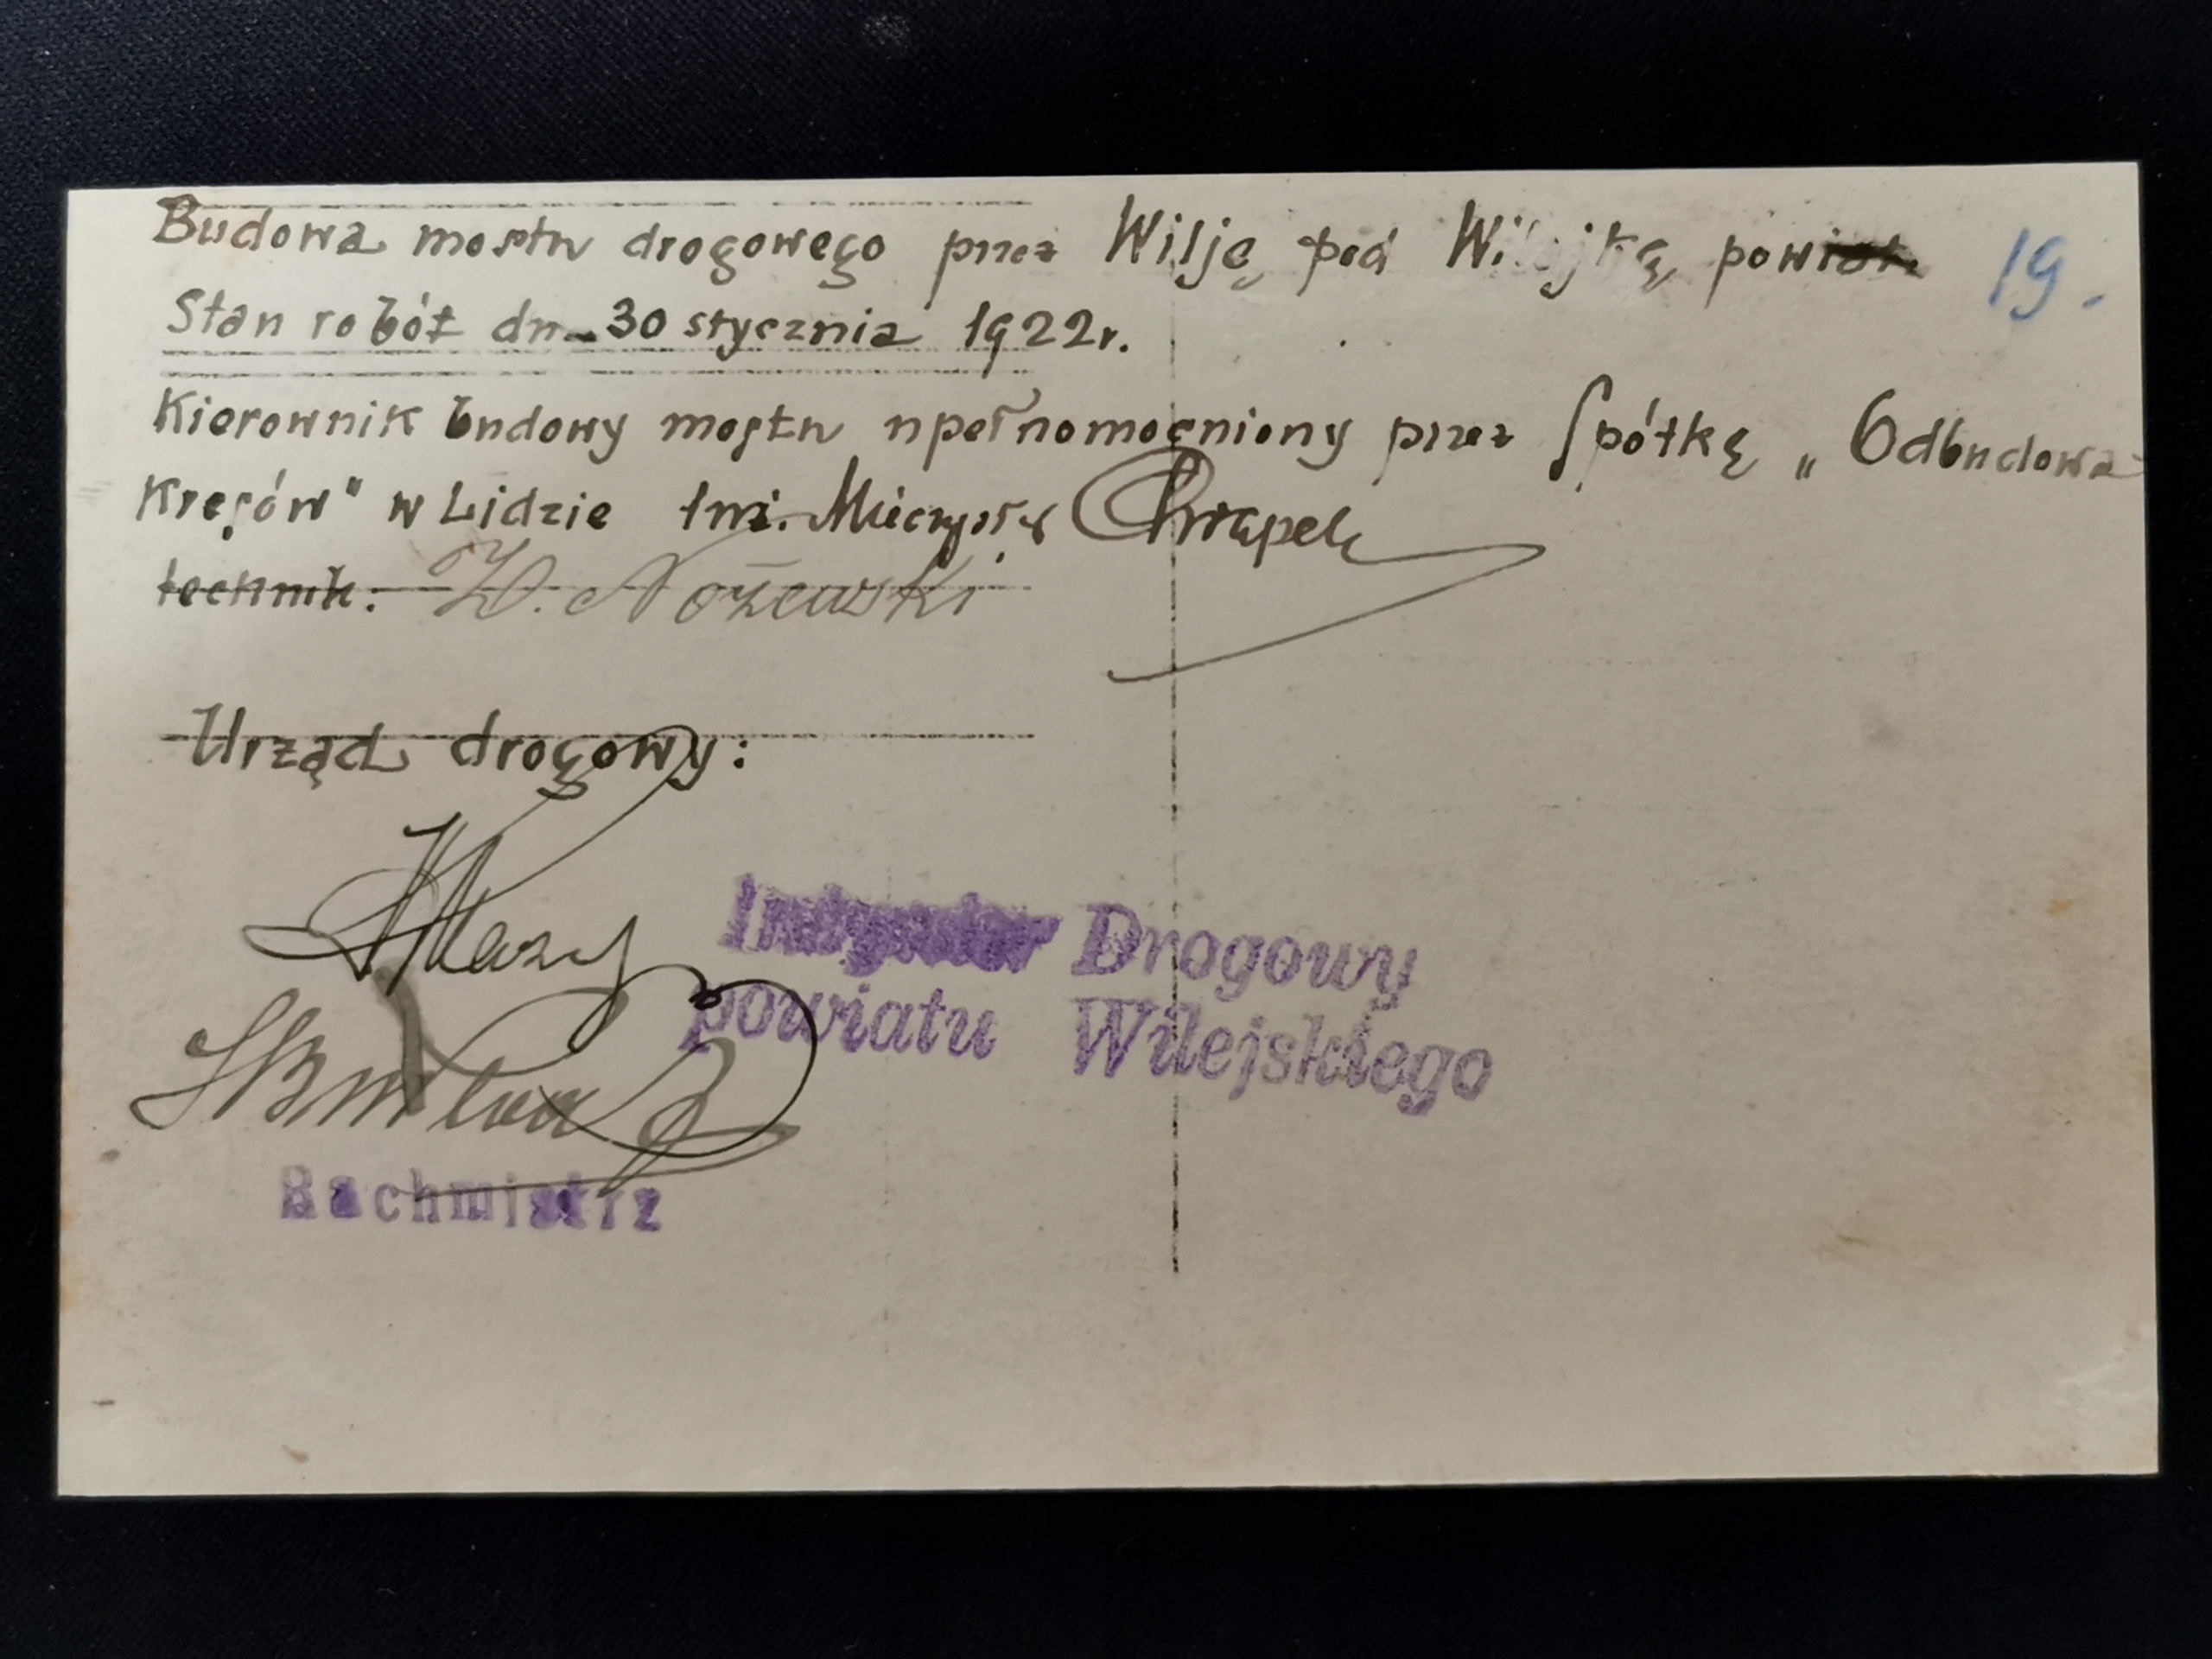 Budowa mostu drogowego przez Wilję pod Wilejką, powiat.
19.
Stan robót dn. 30 stycznia 1922r.
Kierownik budowy mostu upełnomocniony przez Spółkę „Odbudowa
Kresów" w Lidzie inż. Mieczysław
technik: W. Nożewski
Urząd drogowy:
Drogowy
powiatu Wilejskiego
Rachmistrz